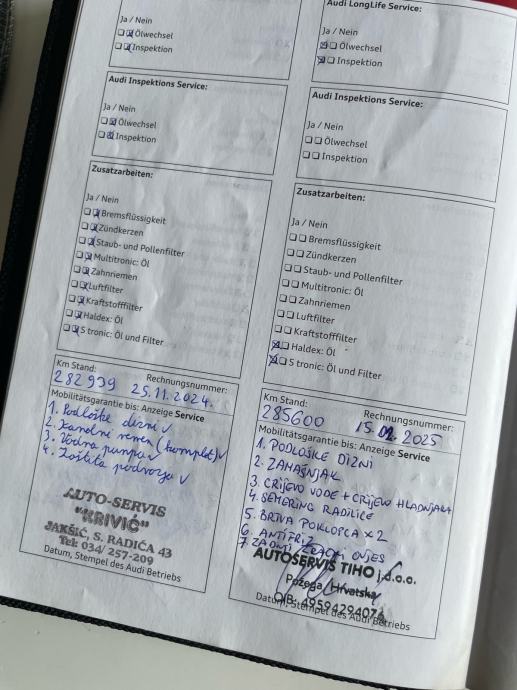 Ja / Nein
Ölwechsel
Inspektion
Audi Inspektions Service:
Ja / Nein
Ölwechsel
Inspektion
Zusatzarbeiten:
Ja / Nein
Bremsflüssigkeit
Zündkerzen
Staub- und Pollenfilter
Multitronic: Öl
Zahnriemen
Luftfilter
Kraftstofffilter
Haldex: Öl
S tronic: Öl und Filter
Km Stand:
Rechnungsnummer:
282939 25.11.2024.
Mobilitätsgarantie bis: Anzeige Service
1. Podloške dizni √
2. Kanalni remen (komplet) √
3. Vodna pumpa √
4. Zaštita podvozja √
AUTO-SERVIS
"KRIVIĆ"
JAKŠIĆ, S. RADIĆA 43
Tel: 034/ 257-209
Datum, Stempel des Audi Betriebs
Audi LongLife Service:
Ja / Nein
Ölwechsel
Inspektion
Audi Inspektions Service:
Ja / Nein
Ölwechsel
Inspektion
Zusatzarbeiten:
Ja / Nein
Bremsflüssigkeit
Zündkerzen
Staub- und Pollenfilter
Multitronic: Öl
Zahnriemen
Luftfilter
Kraftstofffilter
Haldex: Öl
S tronic: Öl und Filter
Km Stand:
Rechnungsnummer:
285600 15.02.2025
Mobilitätsgarantie bis: Anzeige Service
1. PODLOŠKE DIZNI
2. ZAMAŠNJAK
3. CRIJEVO VODE + CRIJEVO HLADNJAKA
4. SEMERING RADILICE
5. BRTVA POKLOPCA x2
6. ANTIFRIZ
7 ZADNJI ZRAČNI OVJES
AUTOSERVIS TIHO j.d.o.o.
Požega, Hrvatska
OIB: 49594294074
Datum, Stempel des Audi Betriebs